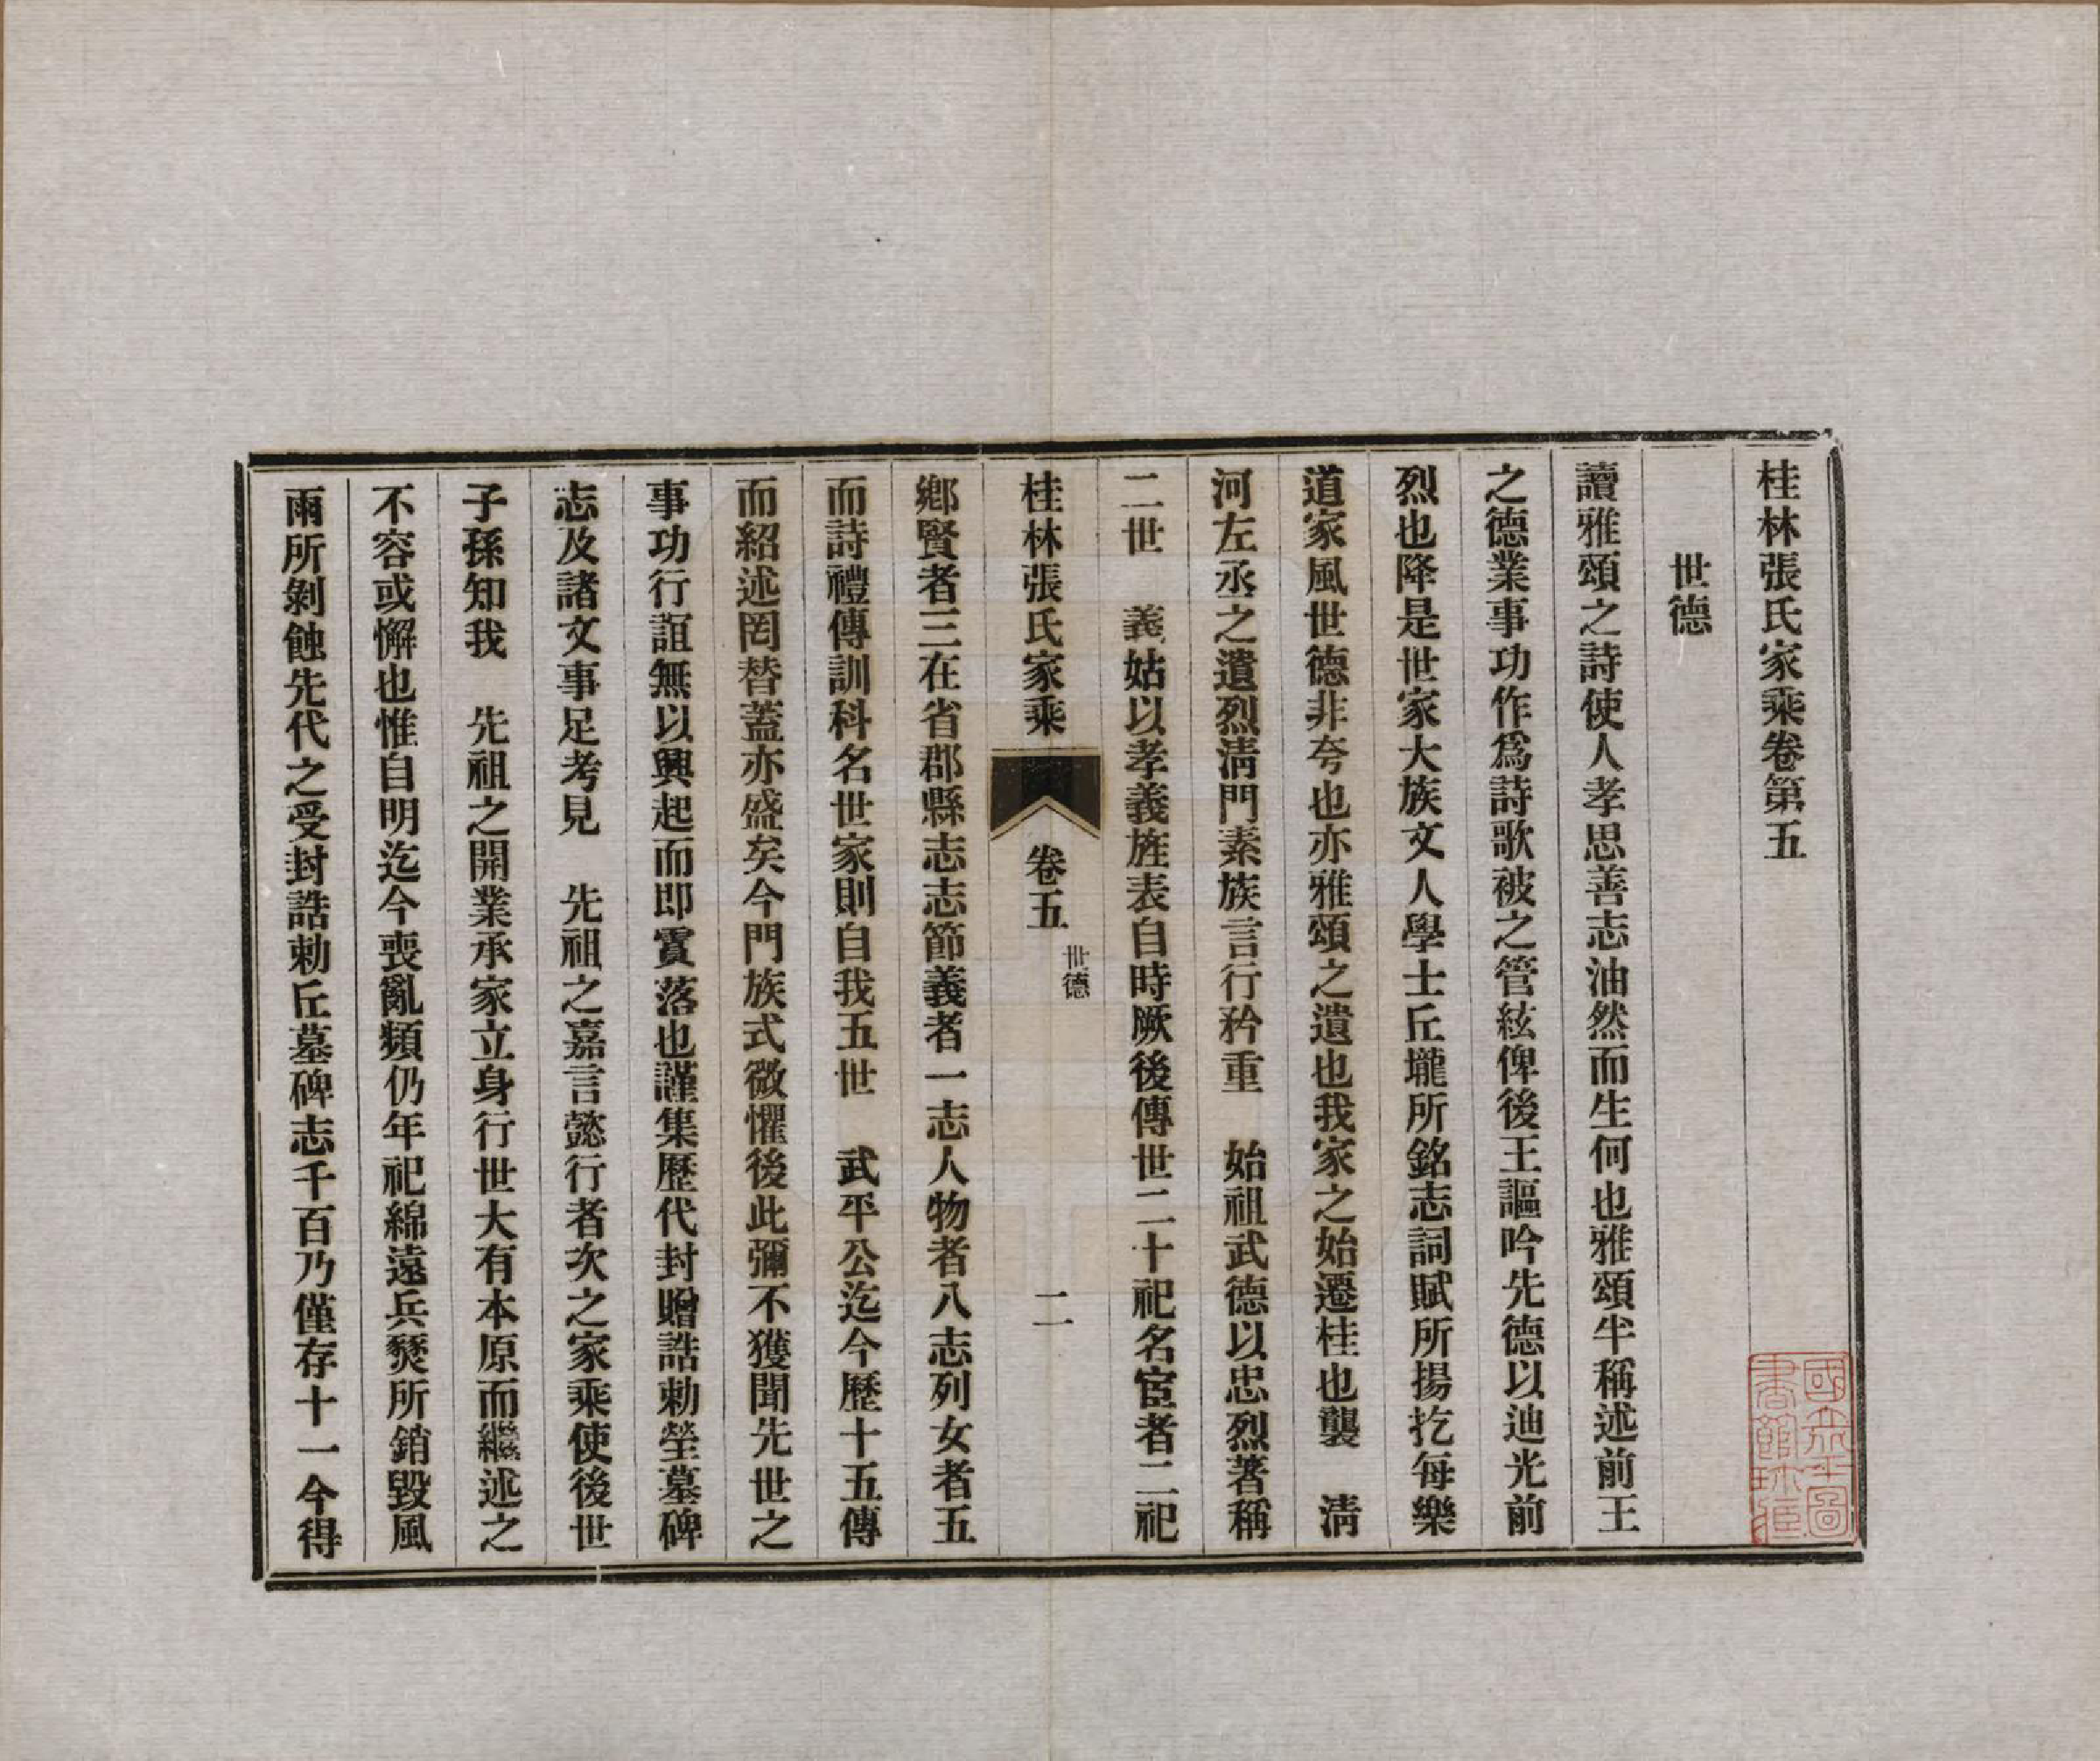 桂林張氏家乘卷第五
世德
讀雅頌之詩使人孝思善志油然而生何也雅頌半稱述前王
之德業事功作爲詩歌被之管絃俾後王謳吟先德以迪光前
烈也降是世家大族文人學士丘壠所銘志詞賦所揚扢每樂
道家風世德非夸也亦雅頌之遺也我家之始遷桂也襲　清
河左丞之遺烈淸門素族言行矜重　始祖武德以忠烈著稱
二世　義姑以孝義旌表自時厥後傳世二十祀名宦者二祀
桂林張氏家乘　卷五　世德　二
鄉賢者三在省郡縣志志節義者一志人物者八志列女者五
而詩禮傳訓科名世家則自我五世　武平公迄今歷十五傳
而紹述罔替蓋亦盛矣今門族式微懼後此彌不獲聞先世之
事功行誼無以興起而即實落也謹集歷代封贈誥勅塋墓碑
志及諸文事足考見　先祖之嘉言懿行者次之家乘使後世
子孫知我　先祖之開業承家立身行世大有本原而繼述之
不容或懈也惟自明迄今喪亂頻仍年祀綿遠兵燹所銷毀風
雨所剝蝕先代之受封誥勅丘墓碑志千百乃僅存十一今得
國立北平圖書館珍藏